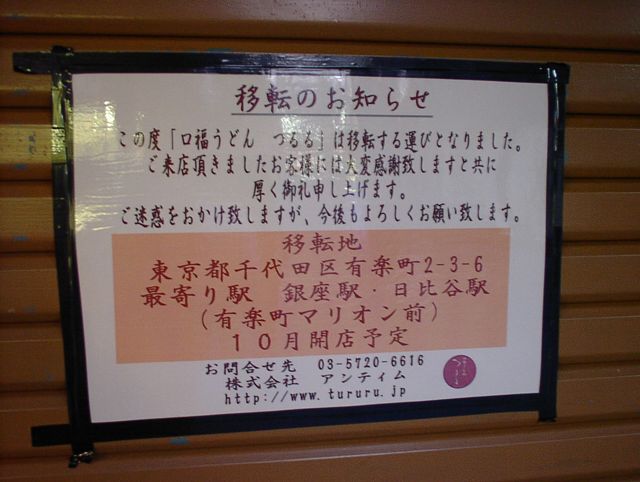 移転のお知らせ
この度「口福うどん つるる」は移転する運びとなりました。
ご来店頂きましたお客様には大変感謝致しますと共に
厚く御礼申し上げます。
ご迷惑をおかけ致しますが、今後もよろしくお願い致します。
移転地
東京都千代田区有楽町2-3-6
最寄り駅 銀座駅・日比谷駅
(有楽町マリオン前)
10月開店予定
お問合せ先 03-5720-6616
株式会社 アンティム
http://www.tururu.jp